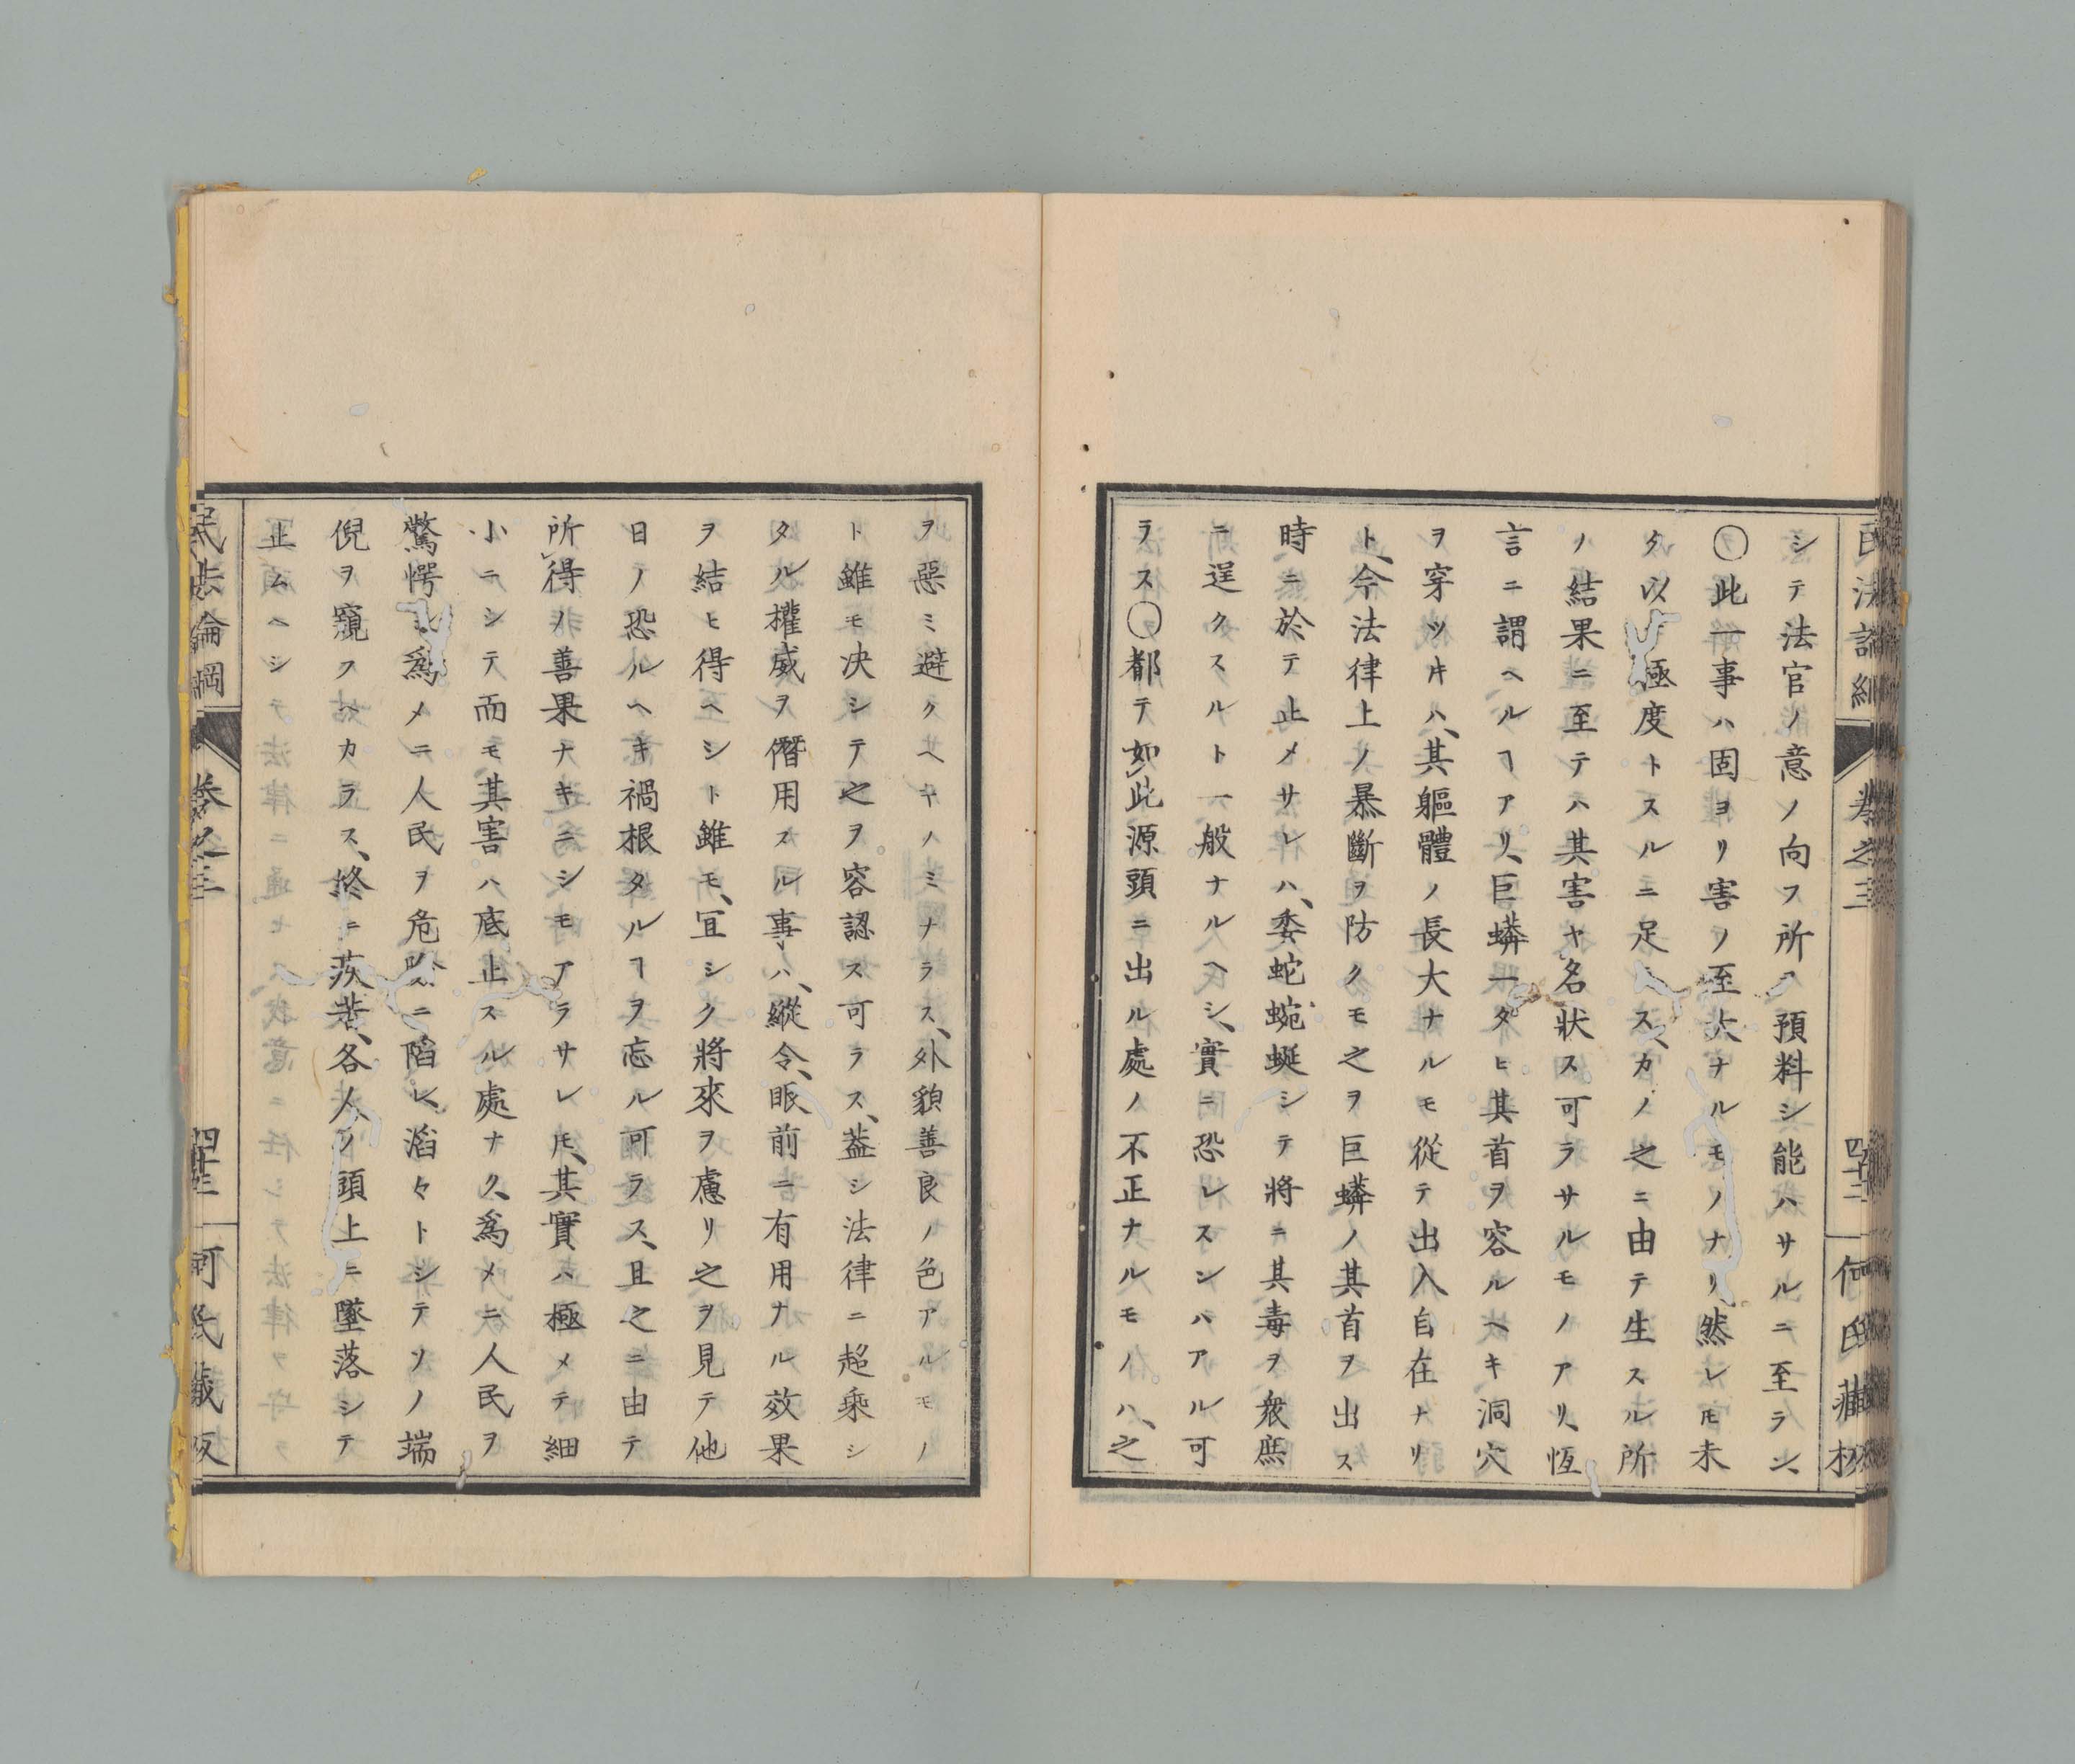 民法論綱 卷之三 四十二 何氏藏板
シテ法官ノ意ノ向フ所ヲ預料シ能ハサルニ至ラン、
〇此一事ハ固ヨリ害ノ至大ナルモノナリ、然レ𪜈未
タ以テ極度トスルニ足ラス、カノ之ニ由テ生スル所
ノ結果ニ至テハ其害ヤ名狀ス可ラサルモノアリ、恆
言ニ謂ヘルヿアリ、巨蟒一タヒ其首ヲ容ルヘキ洞穴
ヲ穿ツ片ハ、其軀體ノ長大ナルモ從テ出入自在ナリ
ト、今法律上ノ暴斷ヲ防クモ之ヲ巨蟒ノ其首ヲ出ス
時ニ於テ止メサレハ、委蛇蜿蜒シテ將ニ其毒ヲ衆庶
ニ逞クスルト一般ナルヘシ、實ニ恐レスンハアル可
ラス〇都テ如此源頭ニ出ル處ノ不正ナルモノハ、之
ヲ惡ミ避クヘキノミナラス、外貌善良ノ色アルモノ
ト雖モ決シテ之ヲ容認ス可ラス、蓋シ法律ニ超乘シ
タル權威ヲ僭用スル事ハ、縱令、眼前ニ有用ナル效果
ヲ結ヒ得ヘシト雖モ、宜シク將來ヲ慮リ之ヲ見テ他
日ノ恐ルヘキ禍根タルヿヲ忘ル可ラス、且之ニ由テ
所得ノ善果ナキニシモアラサレ𪜈、其實ハ極メテ細
小ニシテ而モ其害ハ底止スル處ナク、爲メニ人民ヲ
驚愕シ爲メニ人民ヲ危險ニ陷レ、滔々トシテソノ端
倪ヲ窺フヘカラス、終ニ苡苦、各人ノ頭上ニ墜落シテ
止ムヘシ
民法論綱 卷之三 四十三 何氏藏板